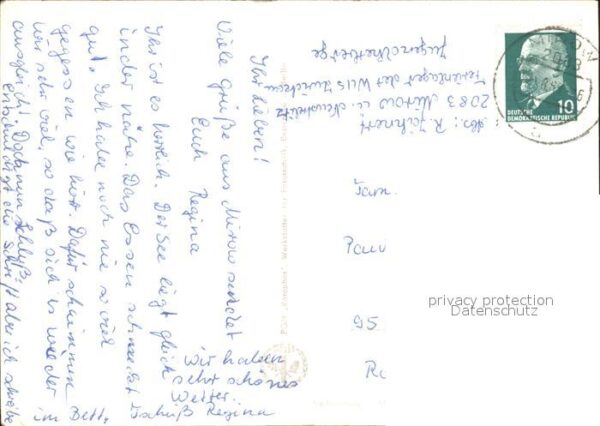 Ihr Lieben!
Viele Grüße aus Mirow sendet
Euch Regina
Ihr ist es herrlich. Der See liegt gleich
in der Nähe. Das Essen schmeckt
gut. Ich habe noch nie so viel
gegessen wie hier. Dafür schwimmen
wir sehr viel, so daß sich es wieder
ausgleicht. Doch nun Schluß.
entschuldigt die Schrift aber ich schreibe
im Bett,
Tschüß Regina
Wir haben
sehr schönes
Wetter.
Abs.: R.
2083 Mirow ü. Neustrelitz
Ferienlager des
Jugendherberge
MIROW
2083
10
DEUTSCHE
DEMOKRATISCHE REPUBLIK
Fam.
95
privacy protection
Datenschutz